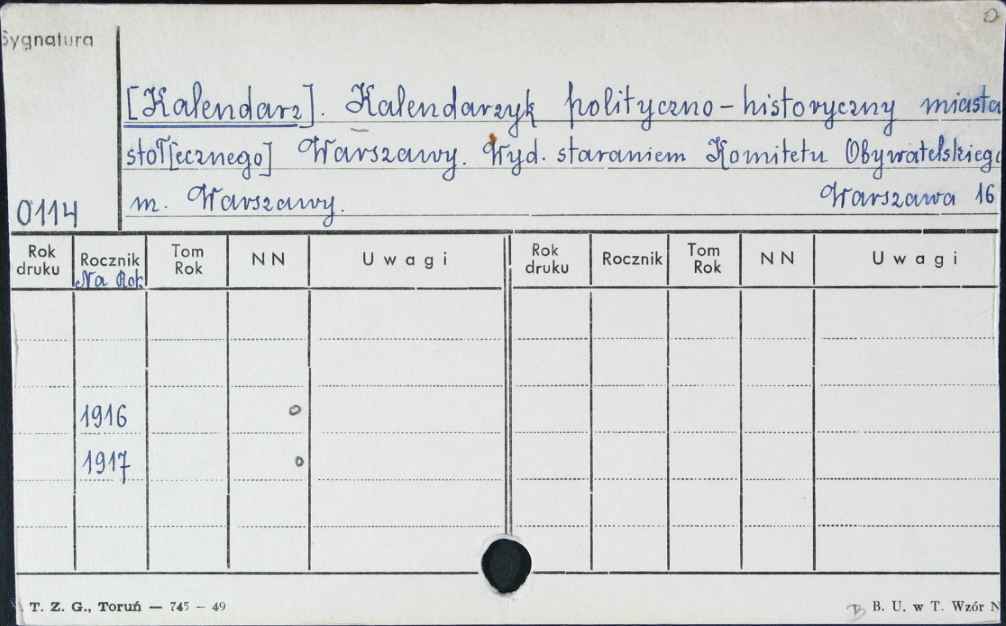 Sygnatura
[Kalendarz]. Kalendarzyk polityczno-historyczny miasta
stoł[ecznego] Warszawy. Wyd. staraniem Komitetu Obywatelskiego
m. Warszawy. Warszawa 16
0114
Rok druku Rocznik Na Rok Tom Rok NN Uwagi Rok druku Rocznik Tom Rok NN Uwagi
1916 o
1917 o
T. Z. G., Toruń — 745 - 49 B. U. w T. Wzór N